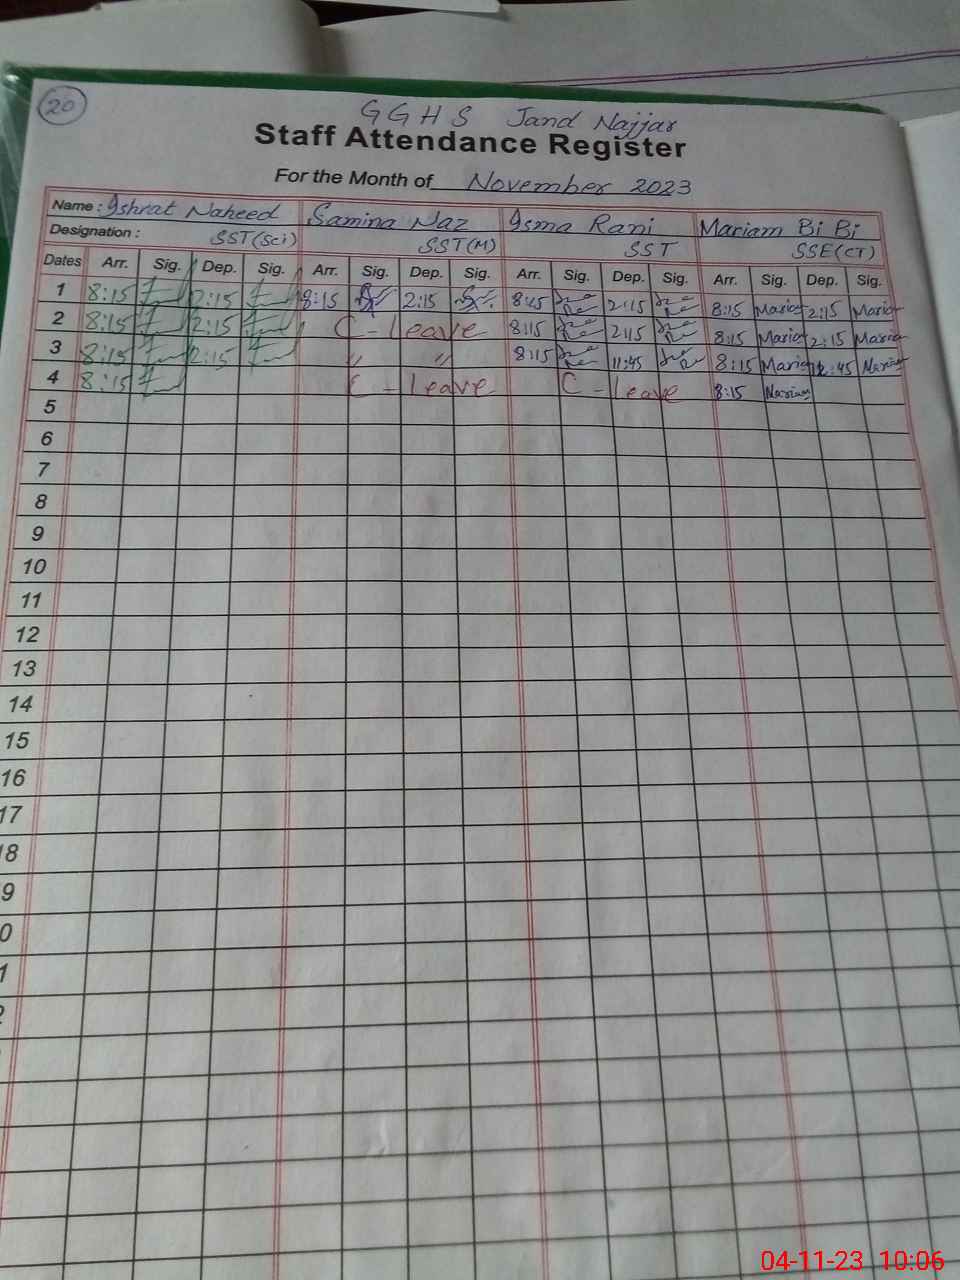 20
GGHS Jand Najjar
Staff Attendance Register
For the Month of November 2023
Name: Ishrat Naheed Samina Naz Isma Rani Mariam Bi Bi
Designation: SST(Sci) SST(M) SST SSE(CT)
Dates Arr. Sig. Dep. Sig. Arr. Sig. Dep. Sig. Arr. Sig. Dep. Sig. Arr. Sig. Dep. Sig.
1 8:15 2:15 8:15 2:15 8:15 2:15 8:15 Mariam 2:15 Mariam
2 8:15 2:15 C-Leave 8:15 2:15 8:15 Mariam 2:15 Mariam
3 8:15 2:15 " " 8:15 11:45 8:15 Mariam :45 Mariam
4 8:15 C-Leave C-Leave 8:15 Mariam
5
6
7
8
9
10
11
12
13
14
15
16
17
18
9
0
1
2
04-11-23 10:06